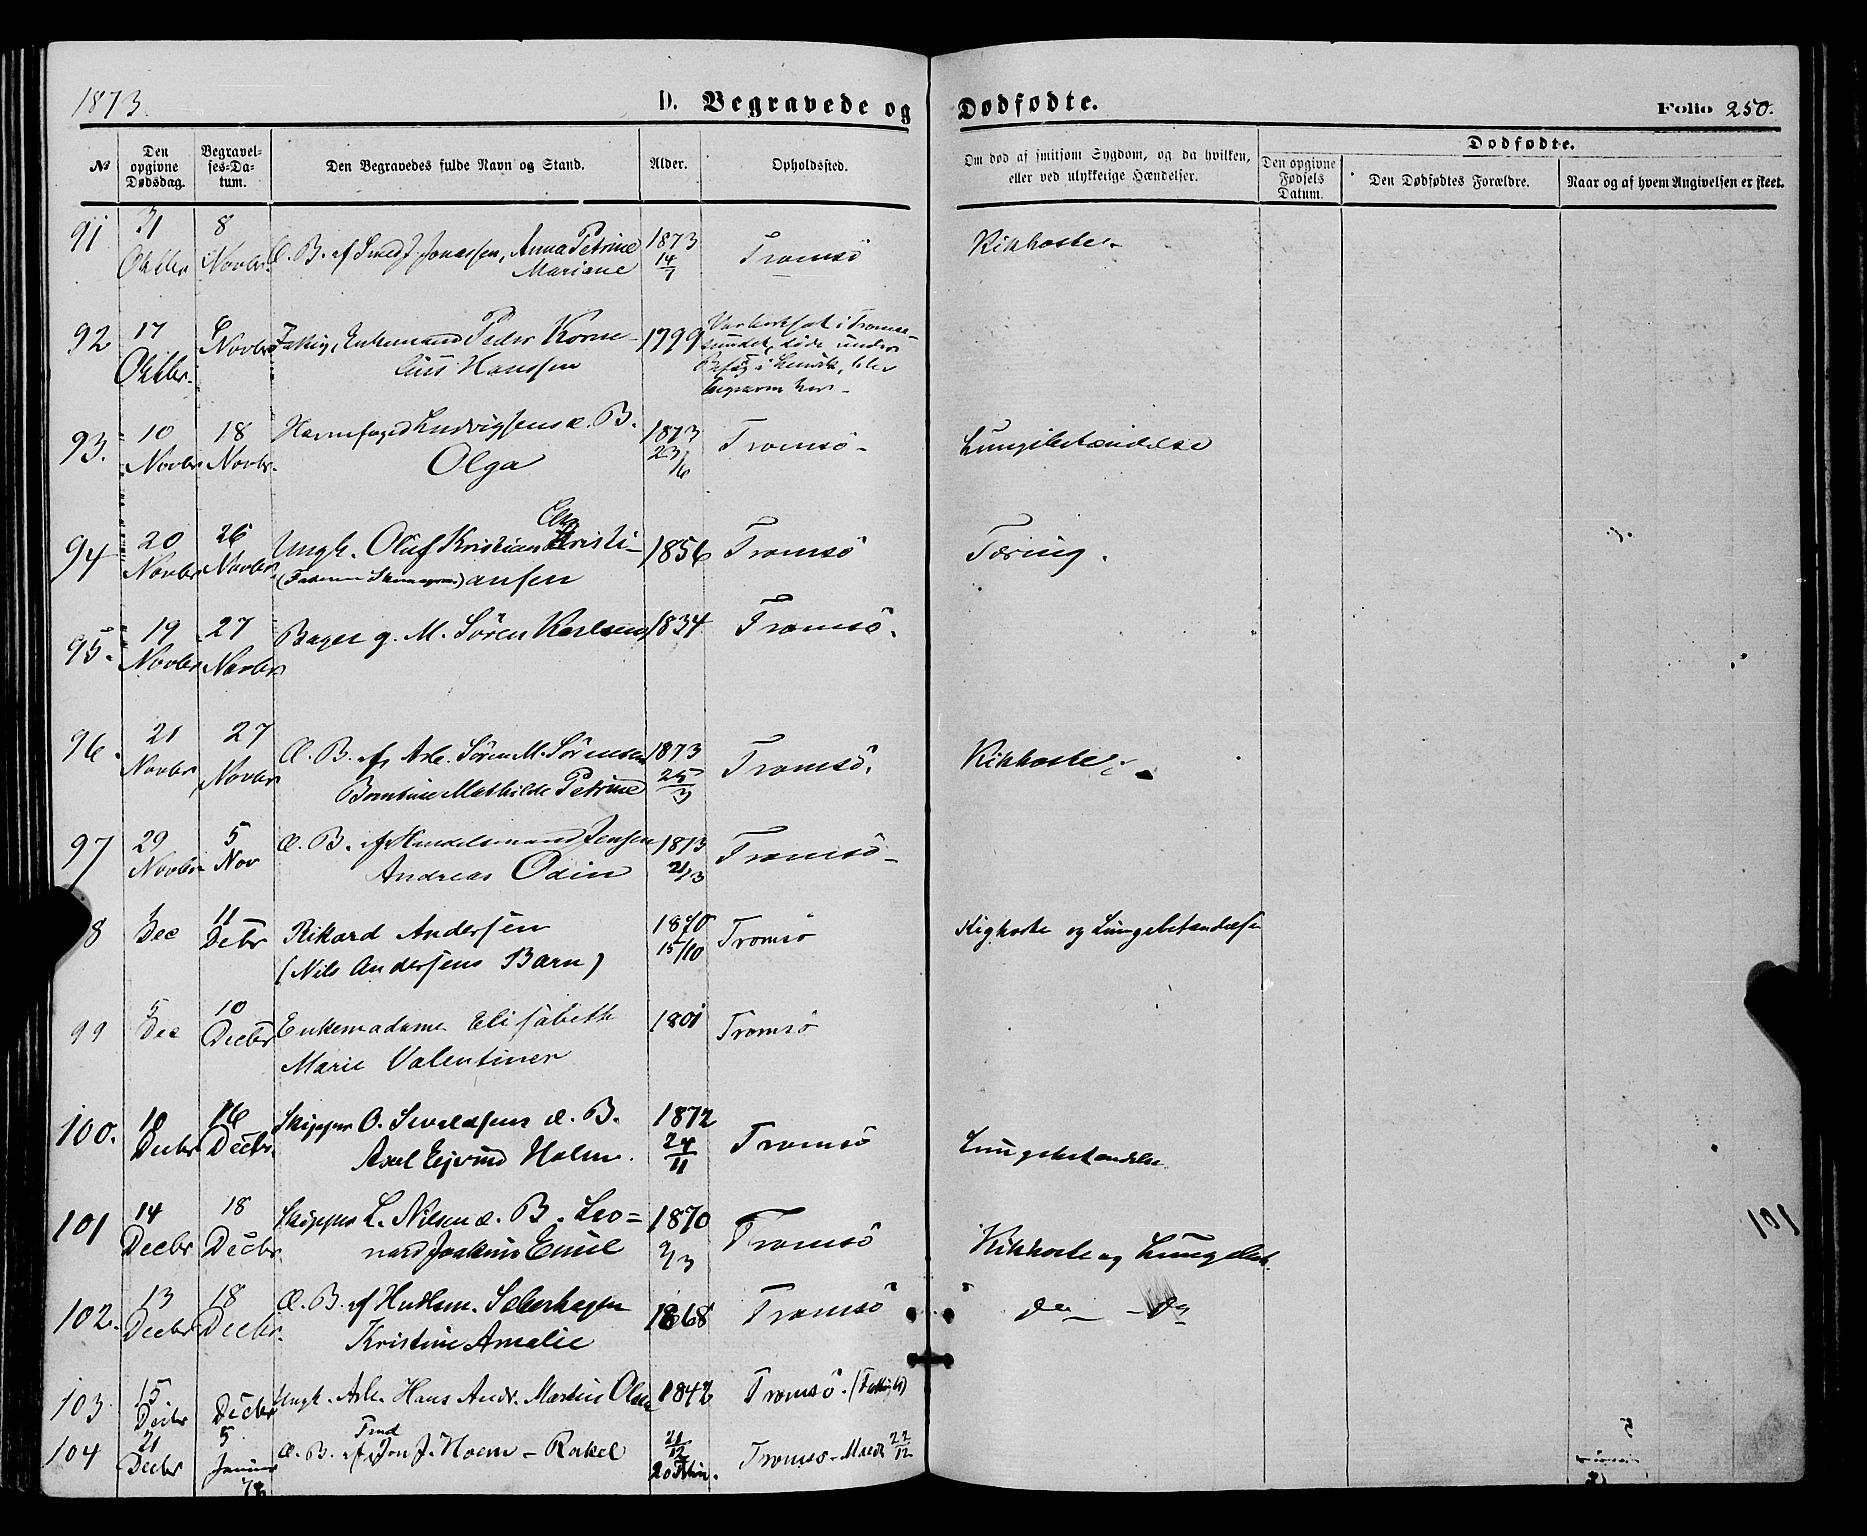 1873. D. Begravede og Dødfødte. Folio 250.
No Den opgivne Dødsdag. Begravelses-Datum. Den Begravedes fulde Navn og Stand. Alder. Opholdssted. Om død af smitsom Sygdom, og da hvilken, eller ved ulykkelige Hændelser. Den opgivne Fødsels Datum. Dødfødte. Den Dødfødtes Forældre. Naar og af hvem Angivelsen er skeet.
91 31 8 1873
Oktbr Novbr. Æ. B. af Smed J. Jonassen, Anna Petrine 14/7 Tromsö Kikhoste.
Mariane
92 17 Novbr Fattig, Enkemand Peder Korne- 1799
Oktbr. lius Hanssen
93. 10 18 Havnefoged Ludvigsens æ. B. 1873 Tromsö Lungebetændelse
Novbr Novbr. Olga 23/6
94 20 26 Ungk. Oluf Kristian Kristi- 1856 Tromsö Tæring.
Novbr Novbr. ansen
95. 19 27 Bager g. M. Sören Karlsen 1834 Tromsö.
Novbr Novbr.
96. 21 27 Æ. B. af Arb. Sören M. Sörensen 1873 Tromsö. Kikhoste.
Novbr Novbr Mathilde Petrine 25/3
97 29 5 Æ. B. af Handelsmand Jensen 1873 Tromsö
Novbr Nov Andreas Odin 21/3
8 Dec 11 Rikard Andersen 1870 Tromsö Kighoste og Lungebetændelse
Debr (Nils Andersens Barn) 15/10
99 5 10 Enkemadame Elisabeth 1801 Tromsö
Dec Decbr Marie Valentiner
100. 10 16 Skipper O. æ. B. 1872 Tromsö Lungebetændelse
Decbr Decbr. Axel Ejvind Holm. 24/11
101 14 18 Skipper L. Nilsen æ. B. Leo= 1870 Tromsö Kikhoste og Lungebet. 101
Decbr Decbr. nard Joakim Emil 2/3
102. 13 18 Æ. B. af Hndlsm. 1868 Tromsö do - do
Decbr Decbr. Kristine Amalie
103. 15 Ungk. Arb. Hans Andr. Martin Olsen 1842 Tromsö.
Decbr Decbr
104 21 5 Æ. B. af Jon J. Holm - Rakel 21/12 Tromsö 22/12
Decbr 20